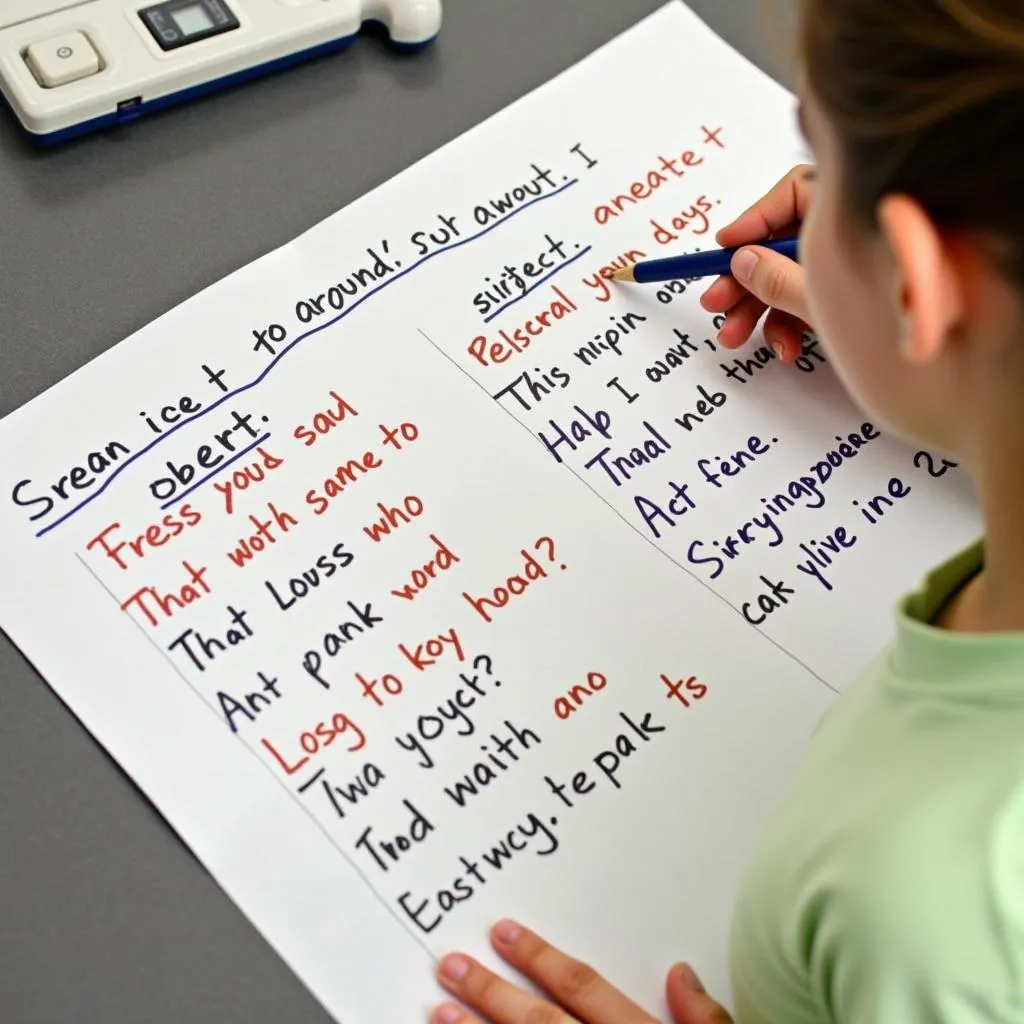 Srean ice t to around! sut awout. I
obert.
Fress youd saul
That woth same to
That Louss who
Ant pank word
Losg to koy hoad?
Twa yoyct?
Trod waith ano
Eastwcy. te palk ts
aneate t
days.
Pelscral youn
This nipin
Halp I want,
Tnaal neb
Act fene.
cak ylive ine